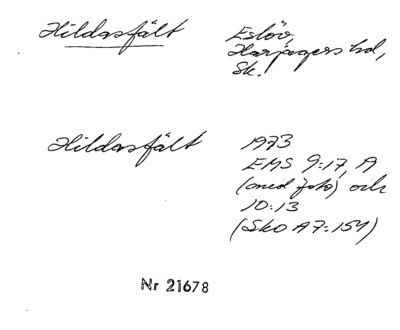 Hildasfält
Eslöv,
Harjagers hd,
Sk.
Hildasfält
1973
EMS 9:17, A
(med foto) och
10:13
(Sko A7:154)
Nr 21678